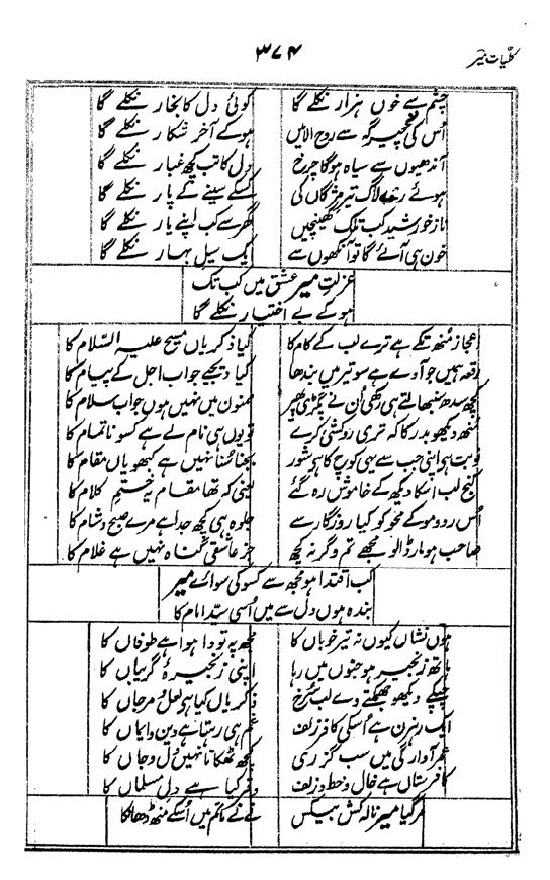 کلیات میر
۳۷۴
چشم سے خوں ہزار نکلے گا کوئی دل کا بخار نکلے گا
اُس کی نخچیر گہ سے روح الامیں ہو کے آخر شکار نکلے گا
آندھیوں سے سیاہ ہوگا چرخ دل کا تب کچھ غبار نکلے گا
ہوئے رہ لاگ تیر مژگاں کی کسکے سینے کے پار نکلے گا
ناز خورشید کب تلک کھینچیں گھر سے کب اپنے یار نکلے گا
خون ہی آئے گا تو آنکھوں سے ایک سیل بہار نکلے گا
عزلتِ میر عشق میں کب تک
ہو کے بے اختیار نکلے گا
اعجاز منھ تکے ہے ترے لب کے کام کا کیا ذکر یاں مسیح علیہ السلام کا
رقعہ ہمیں جو آوے ہے سو تیر میں بندھا کیا دیجے جواب اجل کے پیام کا
کچھ سدھ سنبھالتے ہی رکھی اُن نے پھر ممنون میں نہیں ہوں جواب سلام کا
منھ دیکھو بدر کا کہ تری روکشی کرے تو یوں ہی نام لے ہے کسو ناتمام کا
نوبت ہی اپنی جب سے یہی کوچ کا ہے شور بجنا سنا نہیں ہے کبھو یاں مقام کا
کنج لب اسکا دیکھ کے خاموش رہ گئے یعنی کہ تھا مقام یہ ختم کلام کا
اُس رو و مو کے محو کو کیا روزگار سے جلوہ ہی کچھ جدا ہے مرے صبح و شام کا
صاحب ہو مار ڈالو مجھے تم وگرنہ کچھ جز عاشقی گناہ نہیں ہے غلام کا
کب اقتدا ہو مجھ سے کسو کی سوائے میر
بندہ ہوں دل سے میں اُسی سید امام کا
ہوں نشاں کیوں نہ تیر خوباں کا مجھ پہ تودا ہوا ہے طوفاں کا
ہاتھ زنجیر ہو جنوں میں رہا اپنی زنجیرۂ گریباں کا
چپکے دیکھو جھمکتے وے لب سرخ ذکر یاں کیا ہو لعل و مرجاں کا
ایک رہزن ہے اُسکی کافر زلف غم ہی رہتا ہے دین و ایماں کا
عمر آوارگی میں سب گزری کچھ ٹھکانا نہیں دل و جاں کا
کافرستاں ہے خال و خط و زلف وقر کیا ہے دل مسلماں کا
مر گیا میر نالہ کش بیکس نے نے ماتم میں اُسکے منھ ڈھانکا